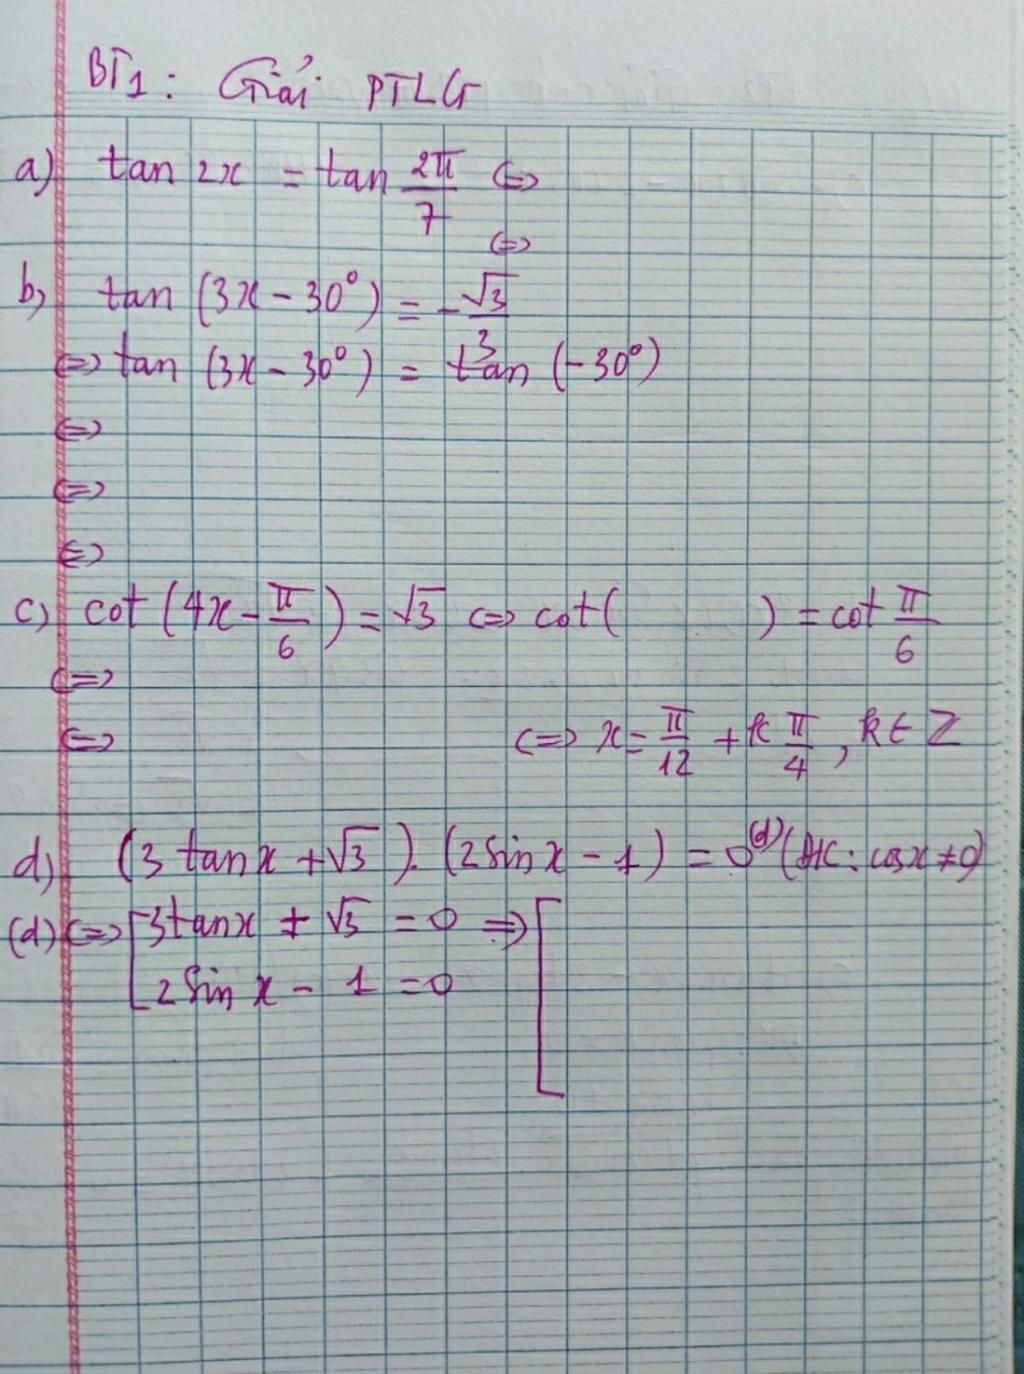 BT1: Giải PTLG
a) tan 2x = tan 2π/7 <=>
<=>
b) tan (3x - 30°) = -√3/3
<=> tan (3x - 30°) = tan (-30°)
<=>
<=>
<=>
c) cot (4x - π/6) = √3 <=> cot ( ) = cot π/6
<=>
<=> <=> x = π/12 + k π/4, k ∈ Z
d) (3 tan x + √3). (2 sin x - 1) = 0 (d) (ĐK: cos x ≠ 0)
(d) <=> [ 3 tan x + √3 = 0 => [
2 sin x - 1 = 0